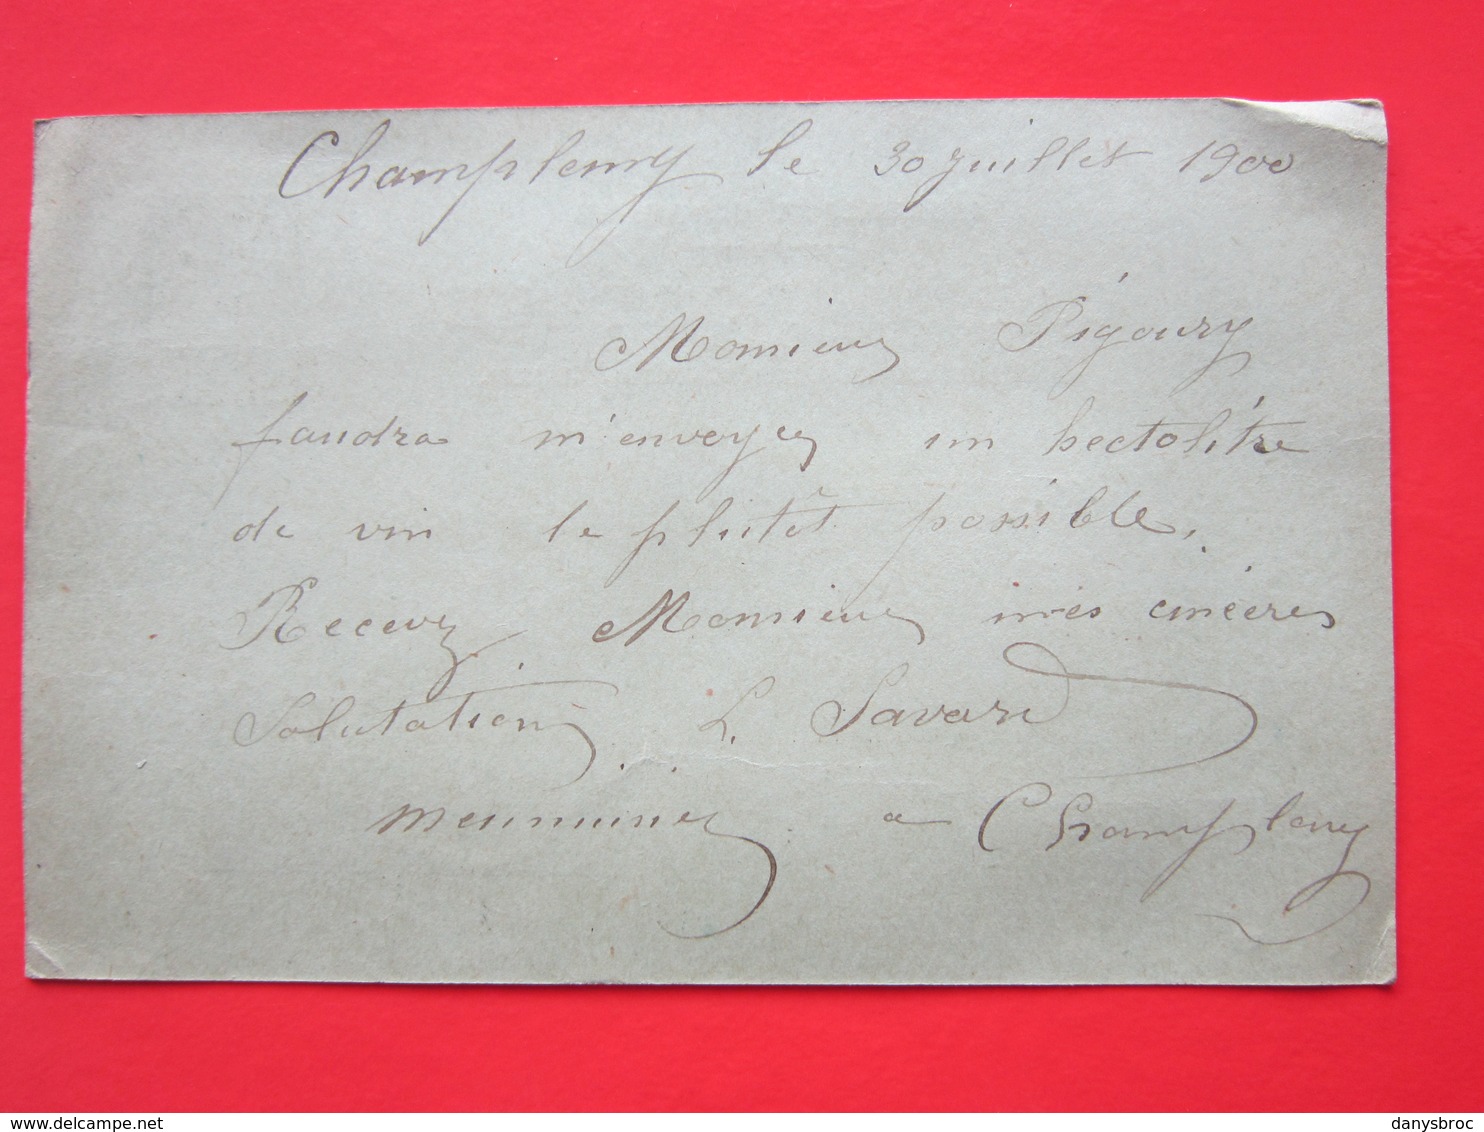 Champlemy le 30 juillet 1900
Monsieur Pigoury
faudra m'envoyer un hectolitre
de vin le plutôt possible.
Recevez Monsieur mes cincères
Salutations L. Savard
meunnier a Champlemy
delcampe.net
danysbroc